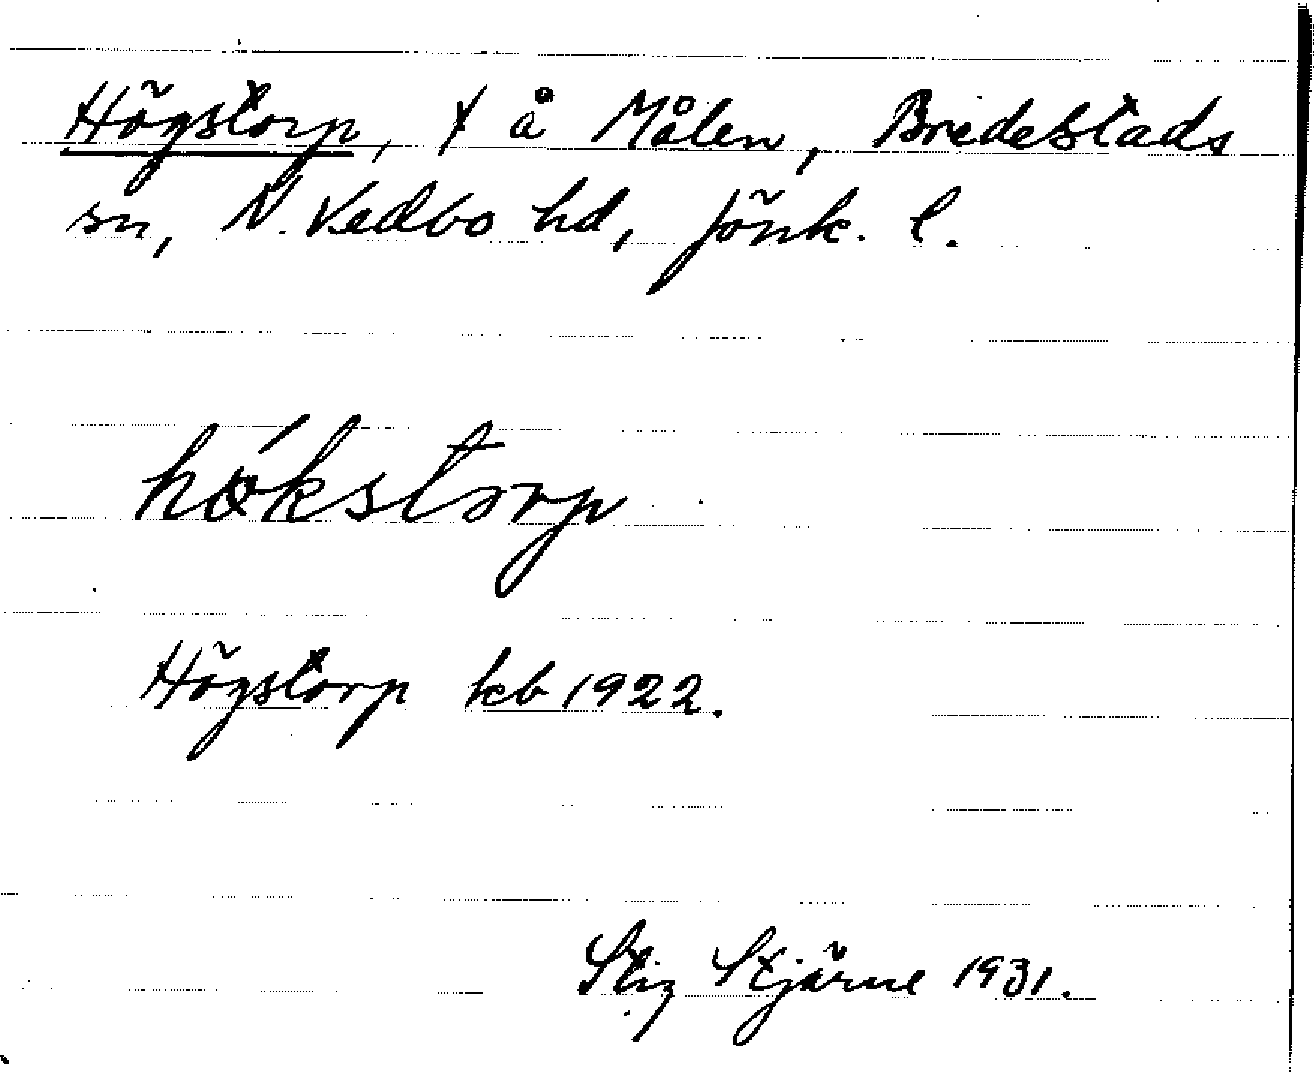 Högstorp, t å Målen, Bredestads
sn, N. Vedbo hd, Jönk. l.
hǿkstorp
Högstorp kb 1922.
Stig Stjärne 1931.